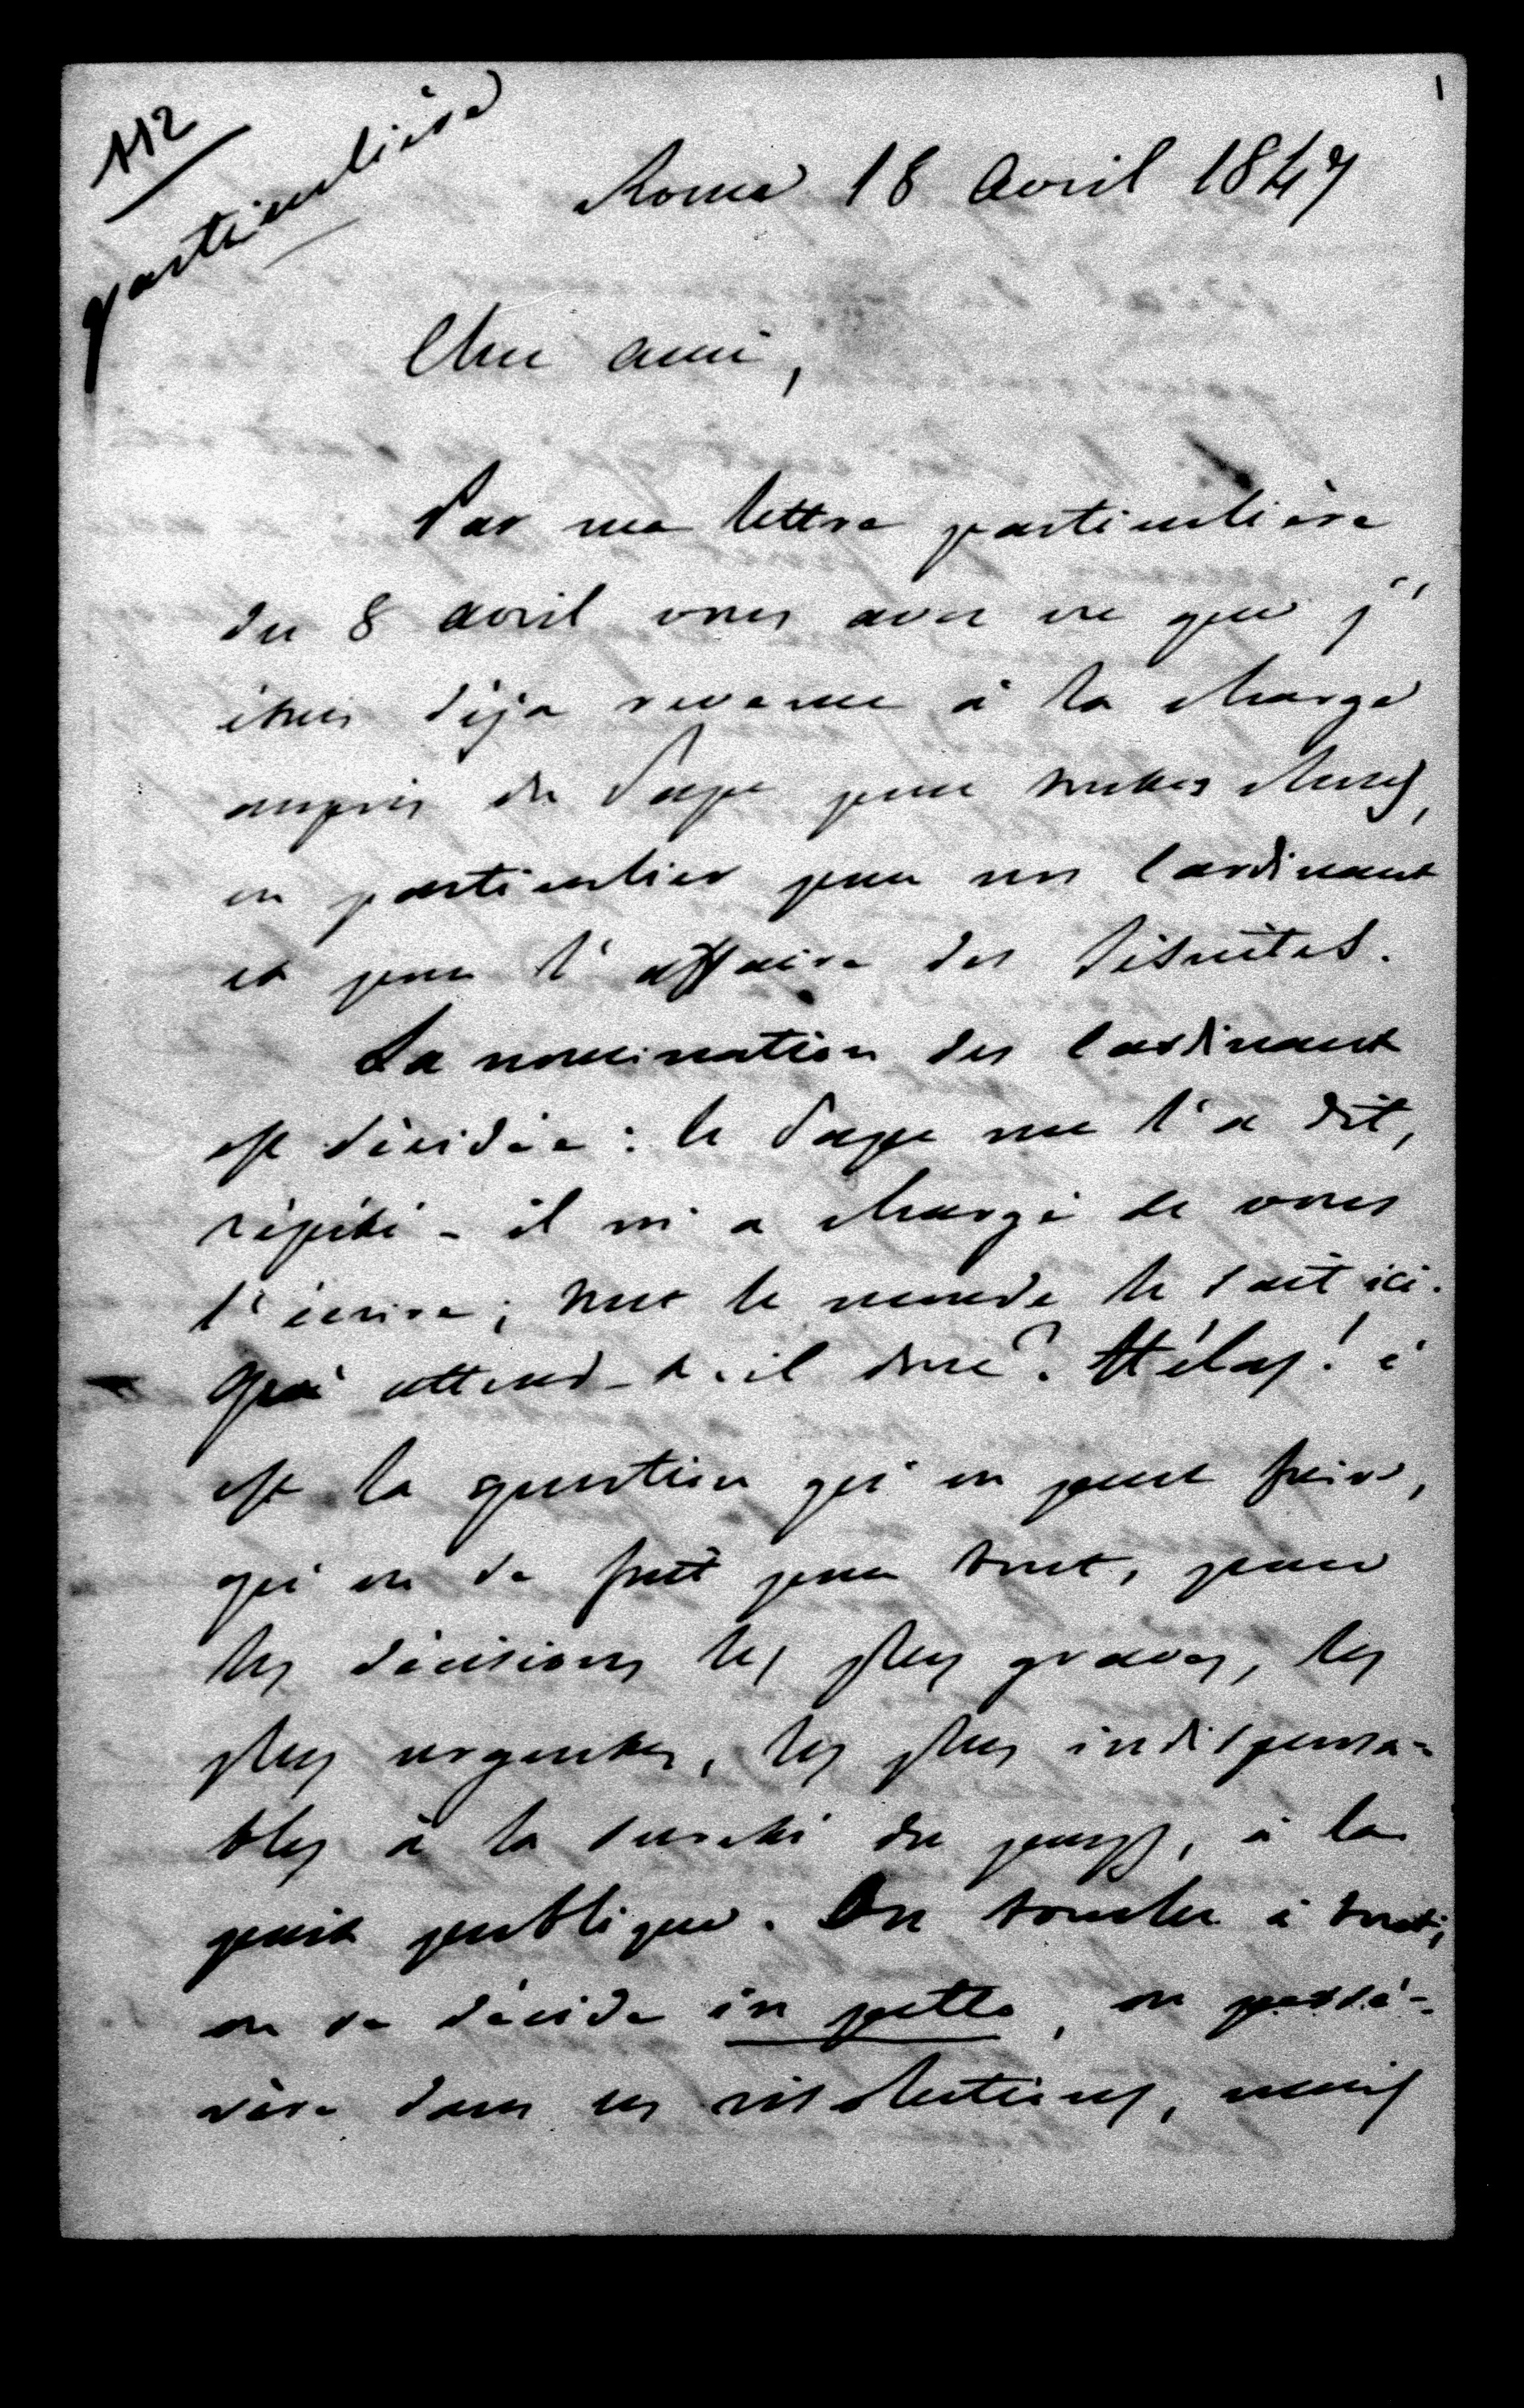 112
1
particulière
Rome 18 avril 1847
Cher ami,
Par ma lettre particulière
du 8 avril vous avez vu que j'
étais déja revenu à la charge
auprès du Pape pour toutes choses,
en particulier pour nos Cardinaux
et pour l'affaire des Jésuites.
La nomination des Cardinaux
est décidée : le Pape me l'a dit,
répété - il m'a chargé de vous
l'écrire ; tout le monde le sait ici.
Qu'attend-t-il donc ? Hélas ! c'
est la question qu'on peut faire,
qu'on se fait pour tout, pour
les décisions les plus graves, les
plus urgentes, les plus indispensa-
bles à la sureté du pays, à la
paix publique. On touche à tout,
on se décide in petto, on persé-
vère dans ses résolutions, mais